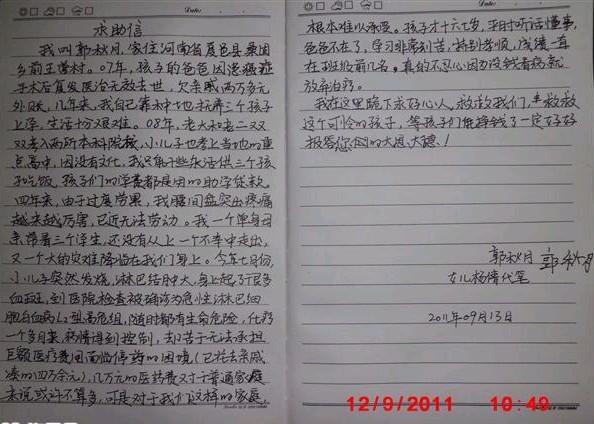 Date:
求助信
我叫郭秋月,家住河南省夏邑县桑固
乡前王楼村。07年,孩子的爸爸因患癌症
手术后复发医治无效去世,欠亲戚两万多元
外账,几年来,我自己靠永中地抚养三个孩子
上学,生活十分艰难。08年,老大和老二双
双考入两所本科院校,小儿子也考上当地的重
点高中,因没有文化,我只能干些杂活供三个孩
子吃饭,孩子们的学费都是国的助学贷款,
四年来,由于过度劳累,我腰间盘突出疼痛
越来越厉害,已近无法劳动。我一个单身母
亲带着三个学生,还没有从上一个不幸中走出,
又一个大的灾难降临在我们身上。今年七月份,
小儿子突然发烧,淋巴结肿大,身上起了许多
血斑,到医院检查被确诊为急性淋巴细
胞白血病L2型高危组,随时都有生命危险,化疗
一个多月来,病情得到控制,却苦于无法承担
巨额医疗费因面临停药的困境(已花去亲戚
凑的四万余元),几万元的医药费对于普通家庭
来说或许不算多,可是对于我们这样的家庭
Date:
根本难以承受。孩子才十六七岁,平时听话懂事,
爸爸不在了,学习非常刻苦,特别孝顺,成绩一直
在班级前几名,真的不忍心因为没钱看病就
放弃治疗。
我在这里跪下求好心人,救救我们,救救
这个可怜的孩子,等孩子们能挣钱了一定好好
报答您们的大恩大德!
郭秋月 郭秋月
女儿杨倩代笔
2011年09月13日
12/9/2011 10:49